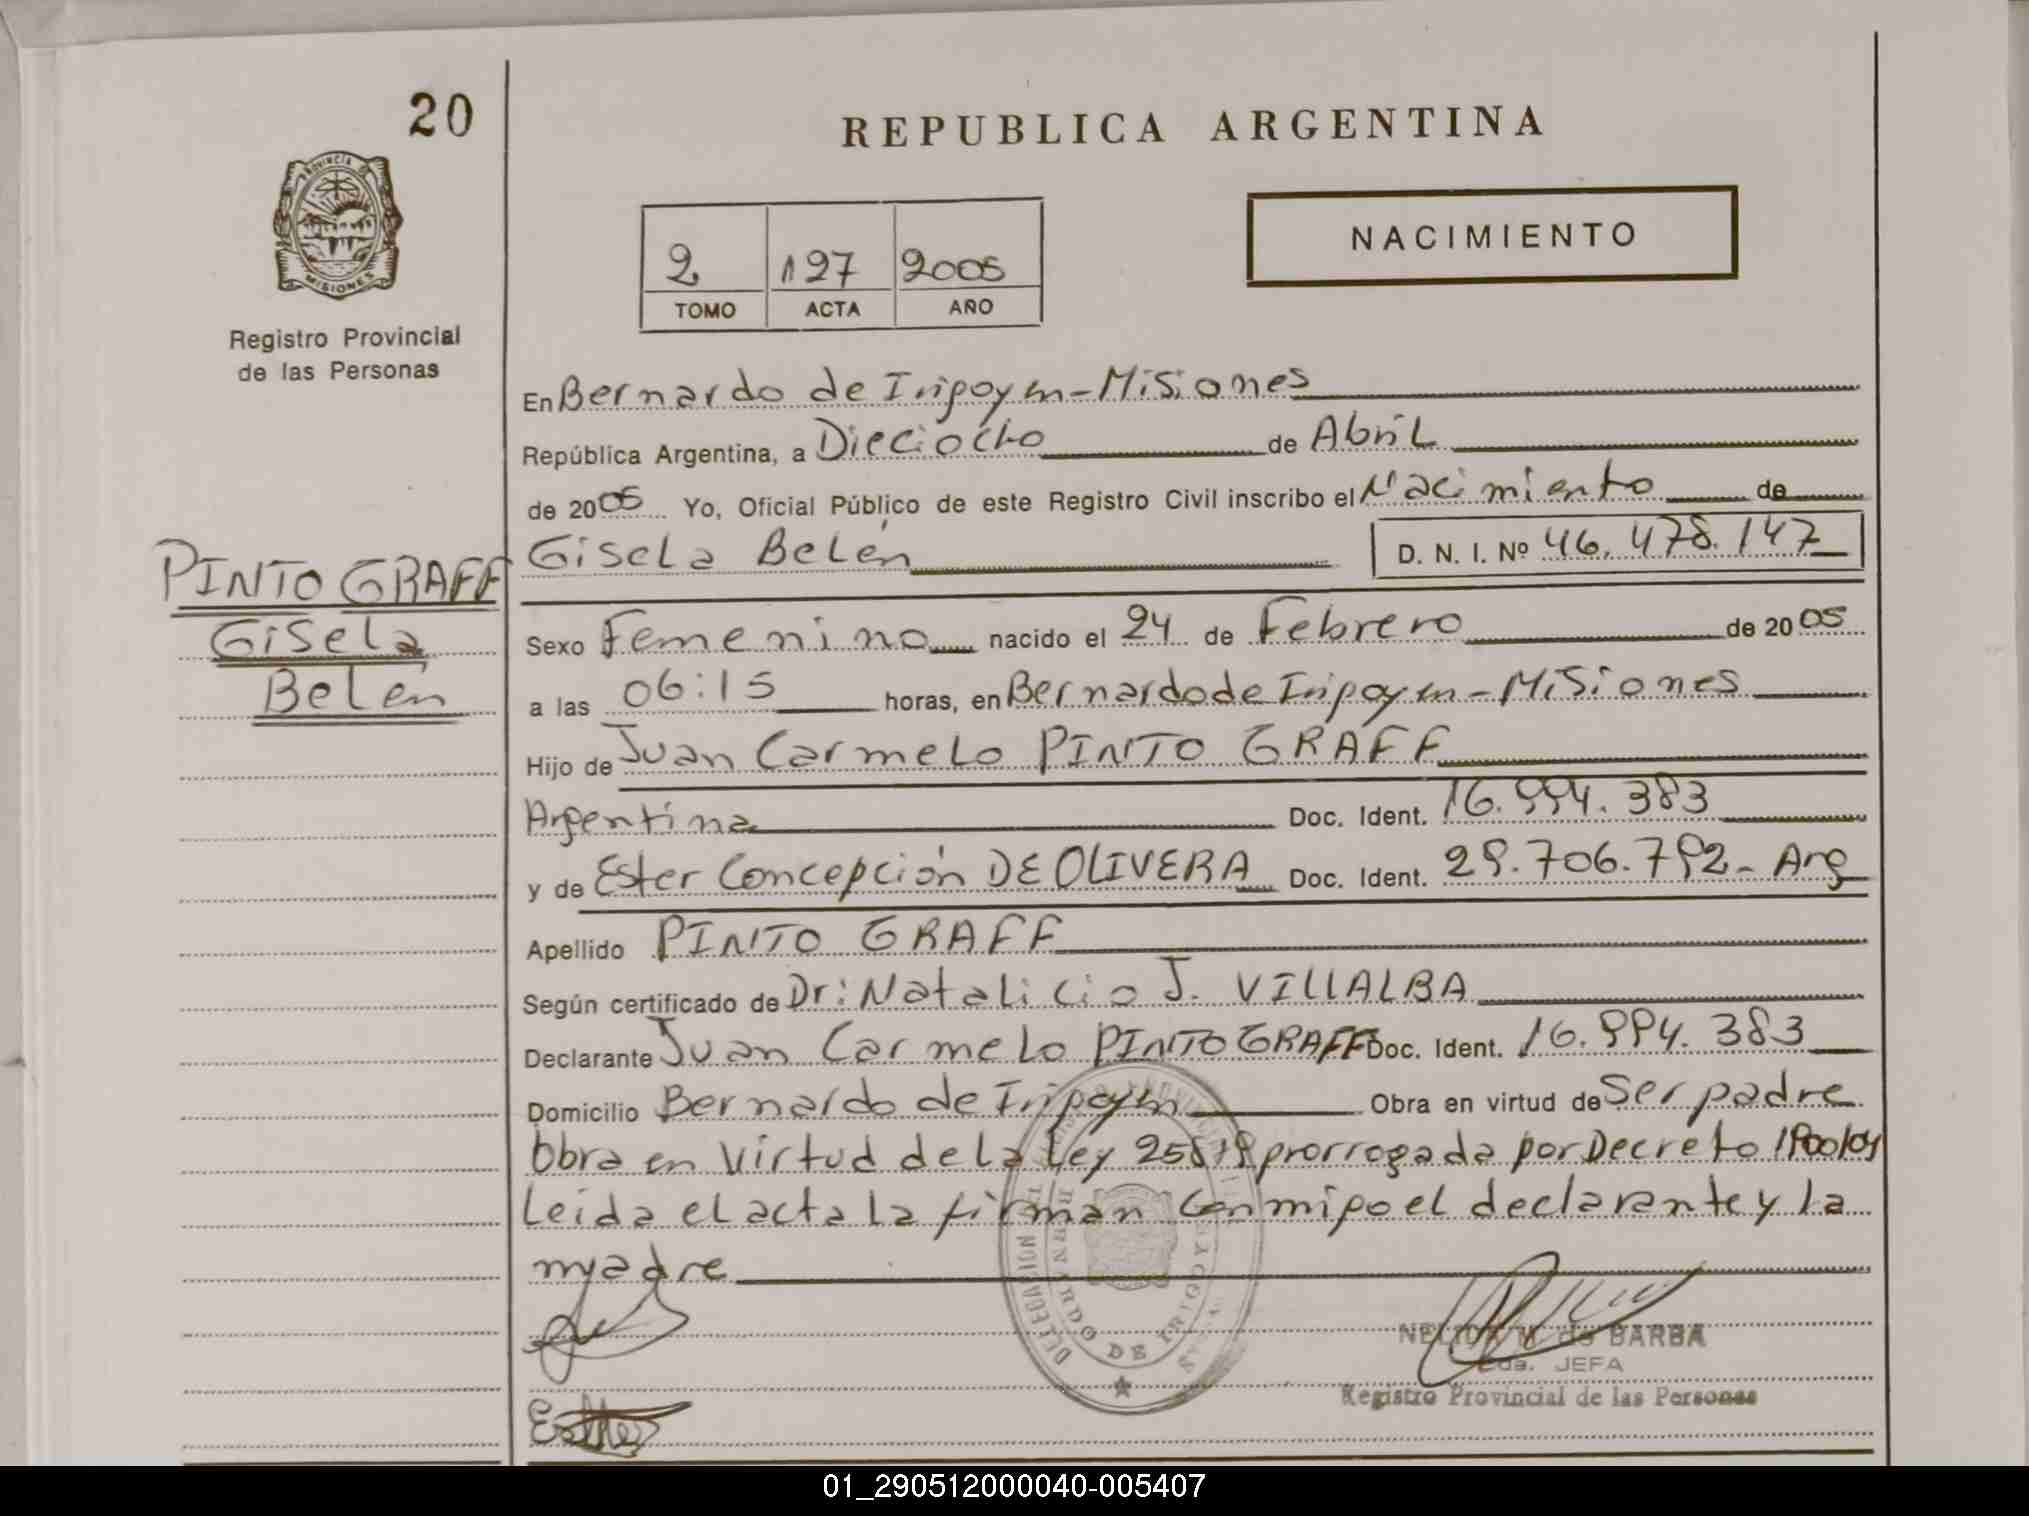 20
REPUBLICA ARGENTINA
PROVINCIA DE
MISIONES
NACIMIENTO
2 127 2005
TOMO ACTA AÑO
Registro Provincial
de las Personas
En Bernardo de Irigoyen-Misiones
República Argentina, a Dieciocho de Abril
de 2005 Yo, Oficial Público de este Registro Civil inscribo el Nacimiento de
Gisela Belén D. N. I. Nº 46.478.147
PINTO GRAFF
Gisela
Belén
Sexo Femenino nacido el 24 de Febrero de 2005
a las 06:15 horas, en Bernardo de Irigoyen-Misiones
Hijo de Juan Carmelo PINTO GRAFF
Argentina Doc. Ident. 16.994.383
y de Ester Concepción DE OLIVERA Doc. Ident. 29.706.792- Arg
Apellido PINTO GRAFF
Según certificado de Dr: Natalicio J. VILLALBA
Declarante Juan Carmelo PINTO GRAFF Doc. Ident. 16.994.383
Domicilio Bernardo de Irigoyen Obra en virtud de Ser padre
Obra en Virtud de la Ley 25819 prorrogada por Decreto
Leída el acta la firman conmigo el declarante y la
madre
DELEGACION
BERNARDO DE IRIGOYEN
NELIDA M. de BARBA
JEFA
Registro Provincial de las Personas
Ester
01_290512000040-005407